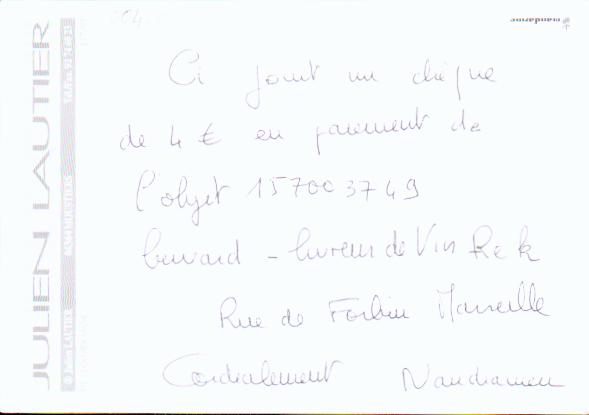 Ci joint un chèque
de 4 € en paiement de
l'objet 157003749
buvard - livreur de Vin
Rue de Forbin Marseille
Cordialement
JULIEN LAUTIER
© Julien LAUTIER
nandrame